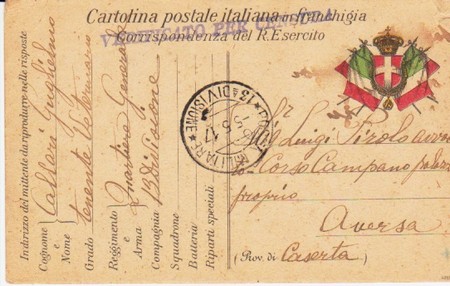 Cartolina postale italiana in franchigia
VERIFICATO PER CENSURA
Corrispondenza del R. Esercito
Indirizzo del mittente da riprodurre nelle risposte
Cognome e Nome
Callari Guglielmo
Grado
Tenente Veterinario
Reggimento e Arma
Quartiere Generale
Compagnia
13 Divisione
Squadrone
Batteria
Riparti speciali
POSTA MILITARE
13ª DIVISIONE
5 17
Luigi Pirolo
Corso Campano
proprio
Aversa
(Prov. di Caserta)